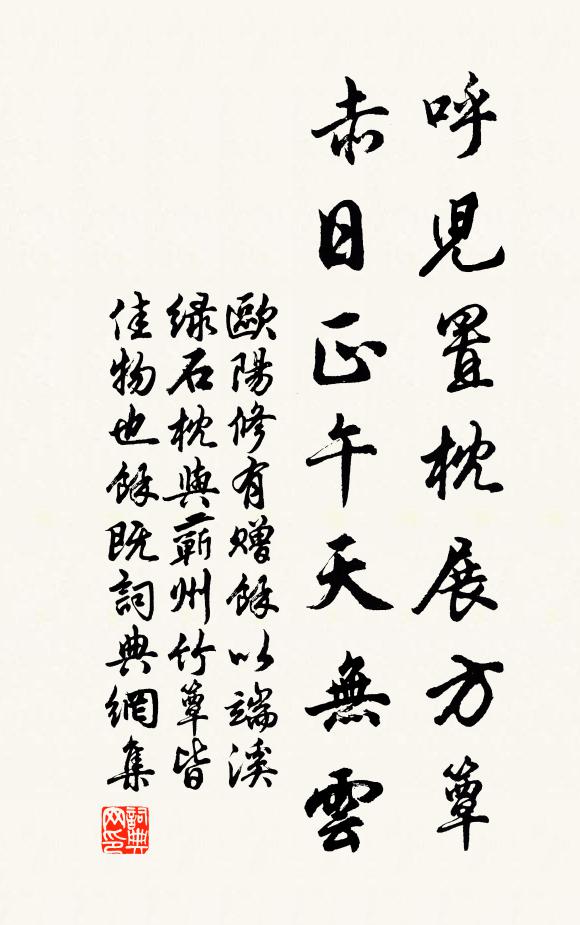 呼児置枕展方簟
赤日正午天無雲
歐陽修有贈餘以端溪
緑石枕與蘄州竹簟皆
佳物也餘既詞典網集
詞典网印